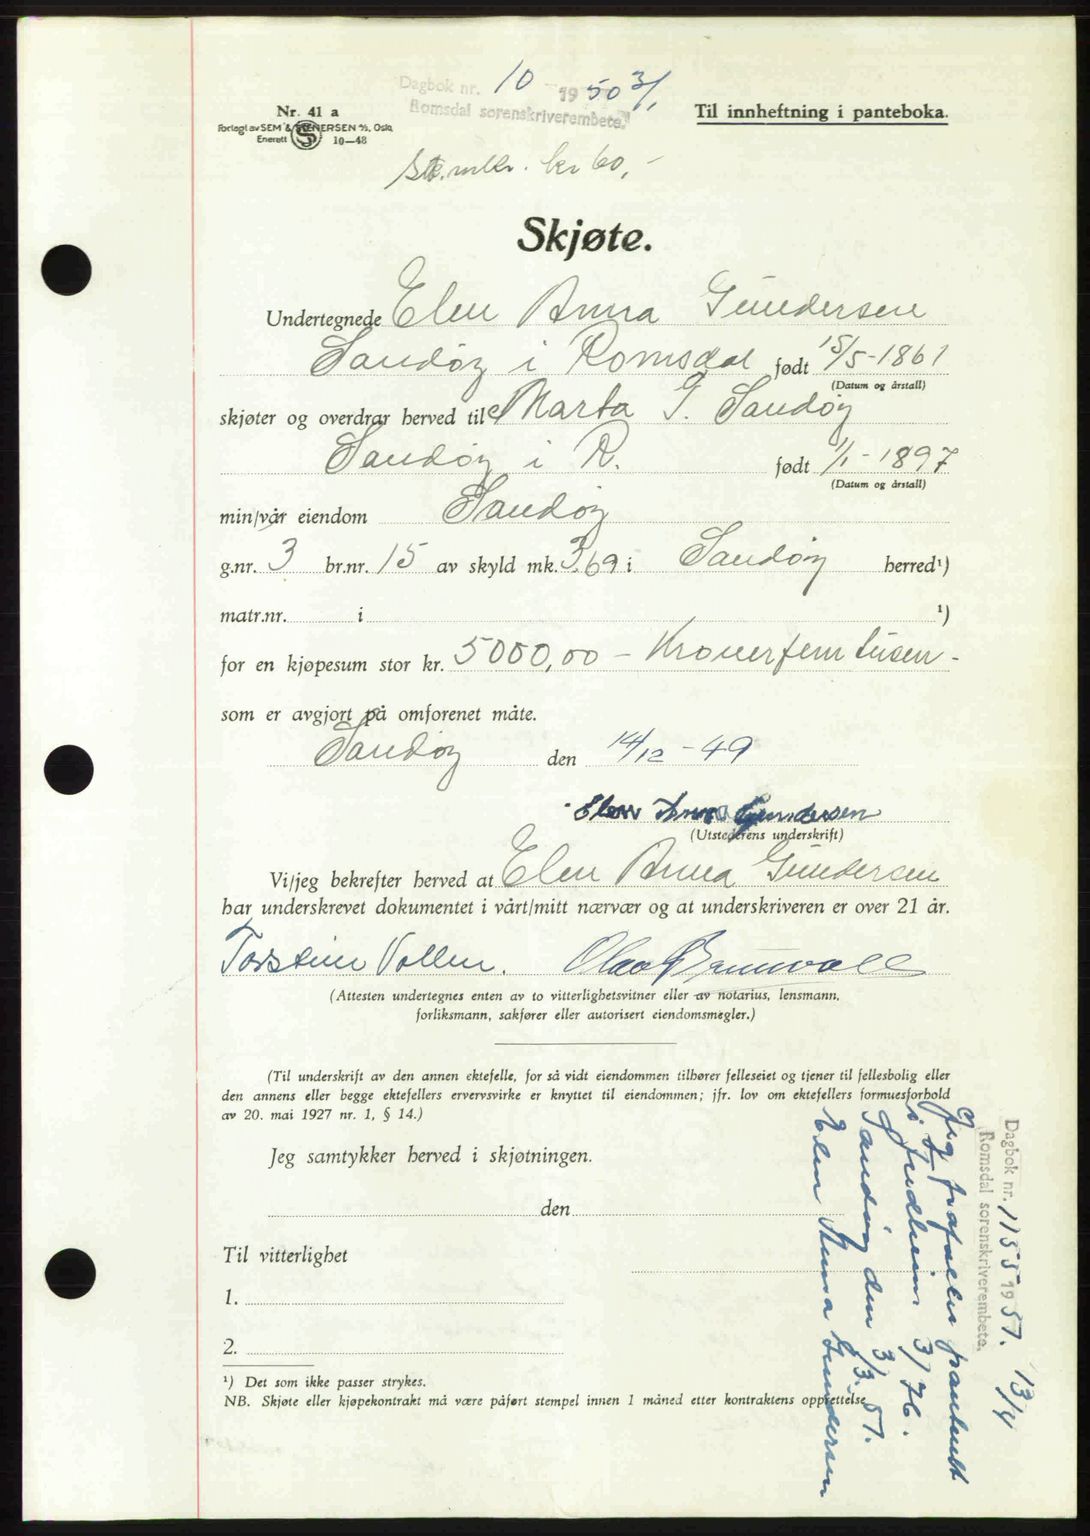 Dagbok nr. 10 1950 3/1
Romsdal sorenskriverembete.
Nr. 41 a
Forlagt av SEM & STENERSEN A/S, Oslo
Enerett 10—48
Til innheftning i panteboka.
St.mkr. kr 60,-
Skjøte.
Undertegnede Elen Anna Gundersen
Sandøy i Romsdal født 15/5-1861
(Datum og årstall)
skjøter og overdrar herved til Marta G. Sandøy
Sandøy i R. født 1/1-1897
(Datum og årstall)
min/vår eiendom Sandøy
g.nr. 3 br.nr. 15 av skyld mk. 3.69 i Sandøy herred¹)
matr.nr. i ¹)
for en kjøpesum stor kr. 5000,00 - Kroner fem tusen -
som er avgjort på omforenet måte.
Sandøy den 14/12-49
Elen Anna Gundersen
(Utstederens underskrift)
Vi/jeg bekrefter herved at Elen Anna Gundersen
har underskrevet dokumentet i vårt/mitt nærvær og at underskriveren er over 21 år.
Torstein Vollen. Olav
(Attesten undertegnes enten av to vitterlighetsvitner eller av notarius, lensmann,
forliksmann, sakfører eller autorisert eiendomsmegler.)
(Til underskrift av den annen ektefelle, for så vidt eiendommen tilhører felleseiet og tjener til fellesbolig eller
den annens eller begge ektefellers ervervsvirke er knyttet til eiendommen; jfr. lov om ektefellers formuesforhold
av 20. mai 1927 nr. 1, § 14.)
Jeg samtykker herved i skjøtningen.
den
Til vitterlighet
1.
2.
¹) Det som ikke passer strykes.
NB. Skjøte eller kjøpekontrakt må være påført stempel innen 1 måned etter kontraktens opprettelse
Dagbok nr. 1155 1951. 13/4
Romsdal sorenskriverembete.
Jeg frafaller pantrett
i 3/76.
Sandøy den 3/3.51.
Elen Anna Gundersen